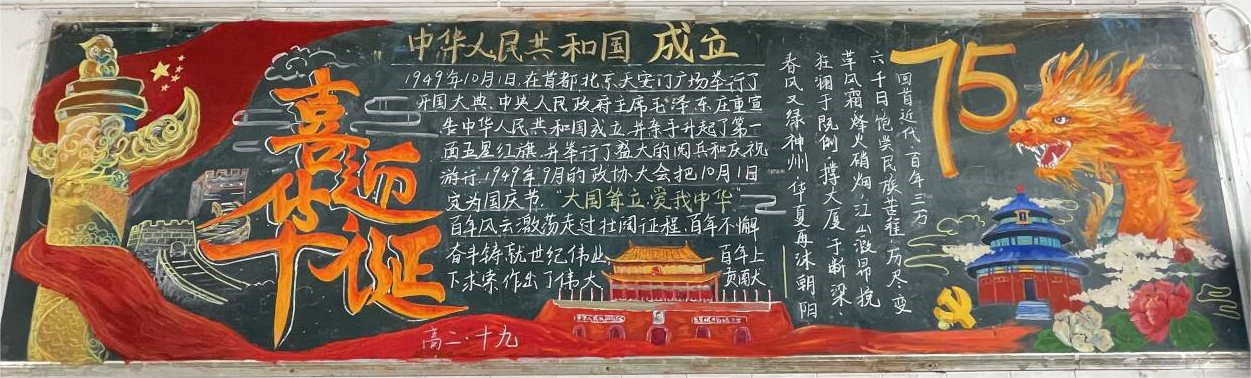 喜迎
华诞
"中华人民共和国 成立
1949年10月1日,在首都北京天安门广场举行了
开国大典,中央人民政府主席毛泽东庄重宣
告中华人民共和国成立,并亲手升起了第一
面五星红旗,并举行了盛大的阅兵和庆祝
游行,1949年9月的政协大会把10月1日
定为国庆节.
"大国耸立,爱我中华"
百年风云激荡走过壮阔征程,百年不懈
奋斗铸就世纪伟业 百年上
下求索作出了伟大 贡献
75
回首近代,百年三万
六千日,饱尝民族苦程,历尽变
革风霜,烽火硝烟,江山激昂,挽
狂澜于既倒,撑大厦于断梁.
春风又绿神州,华夏再沐朝阳
高二.十九